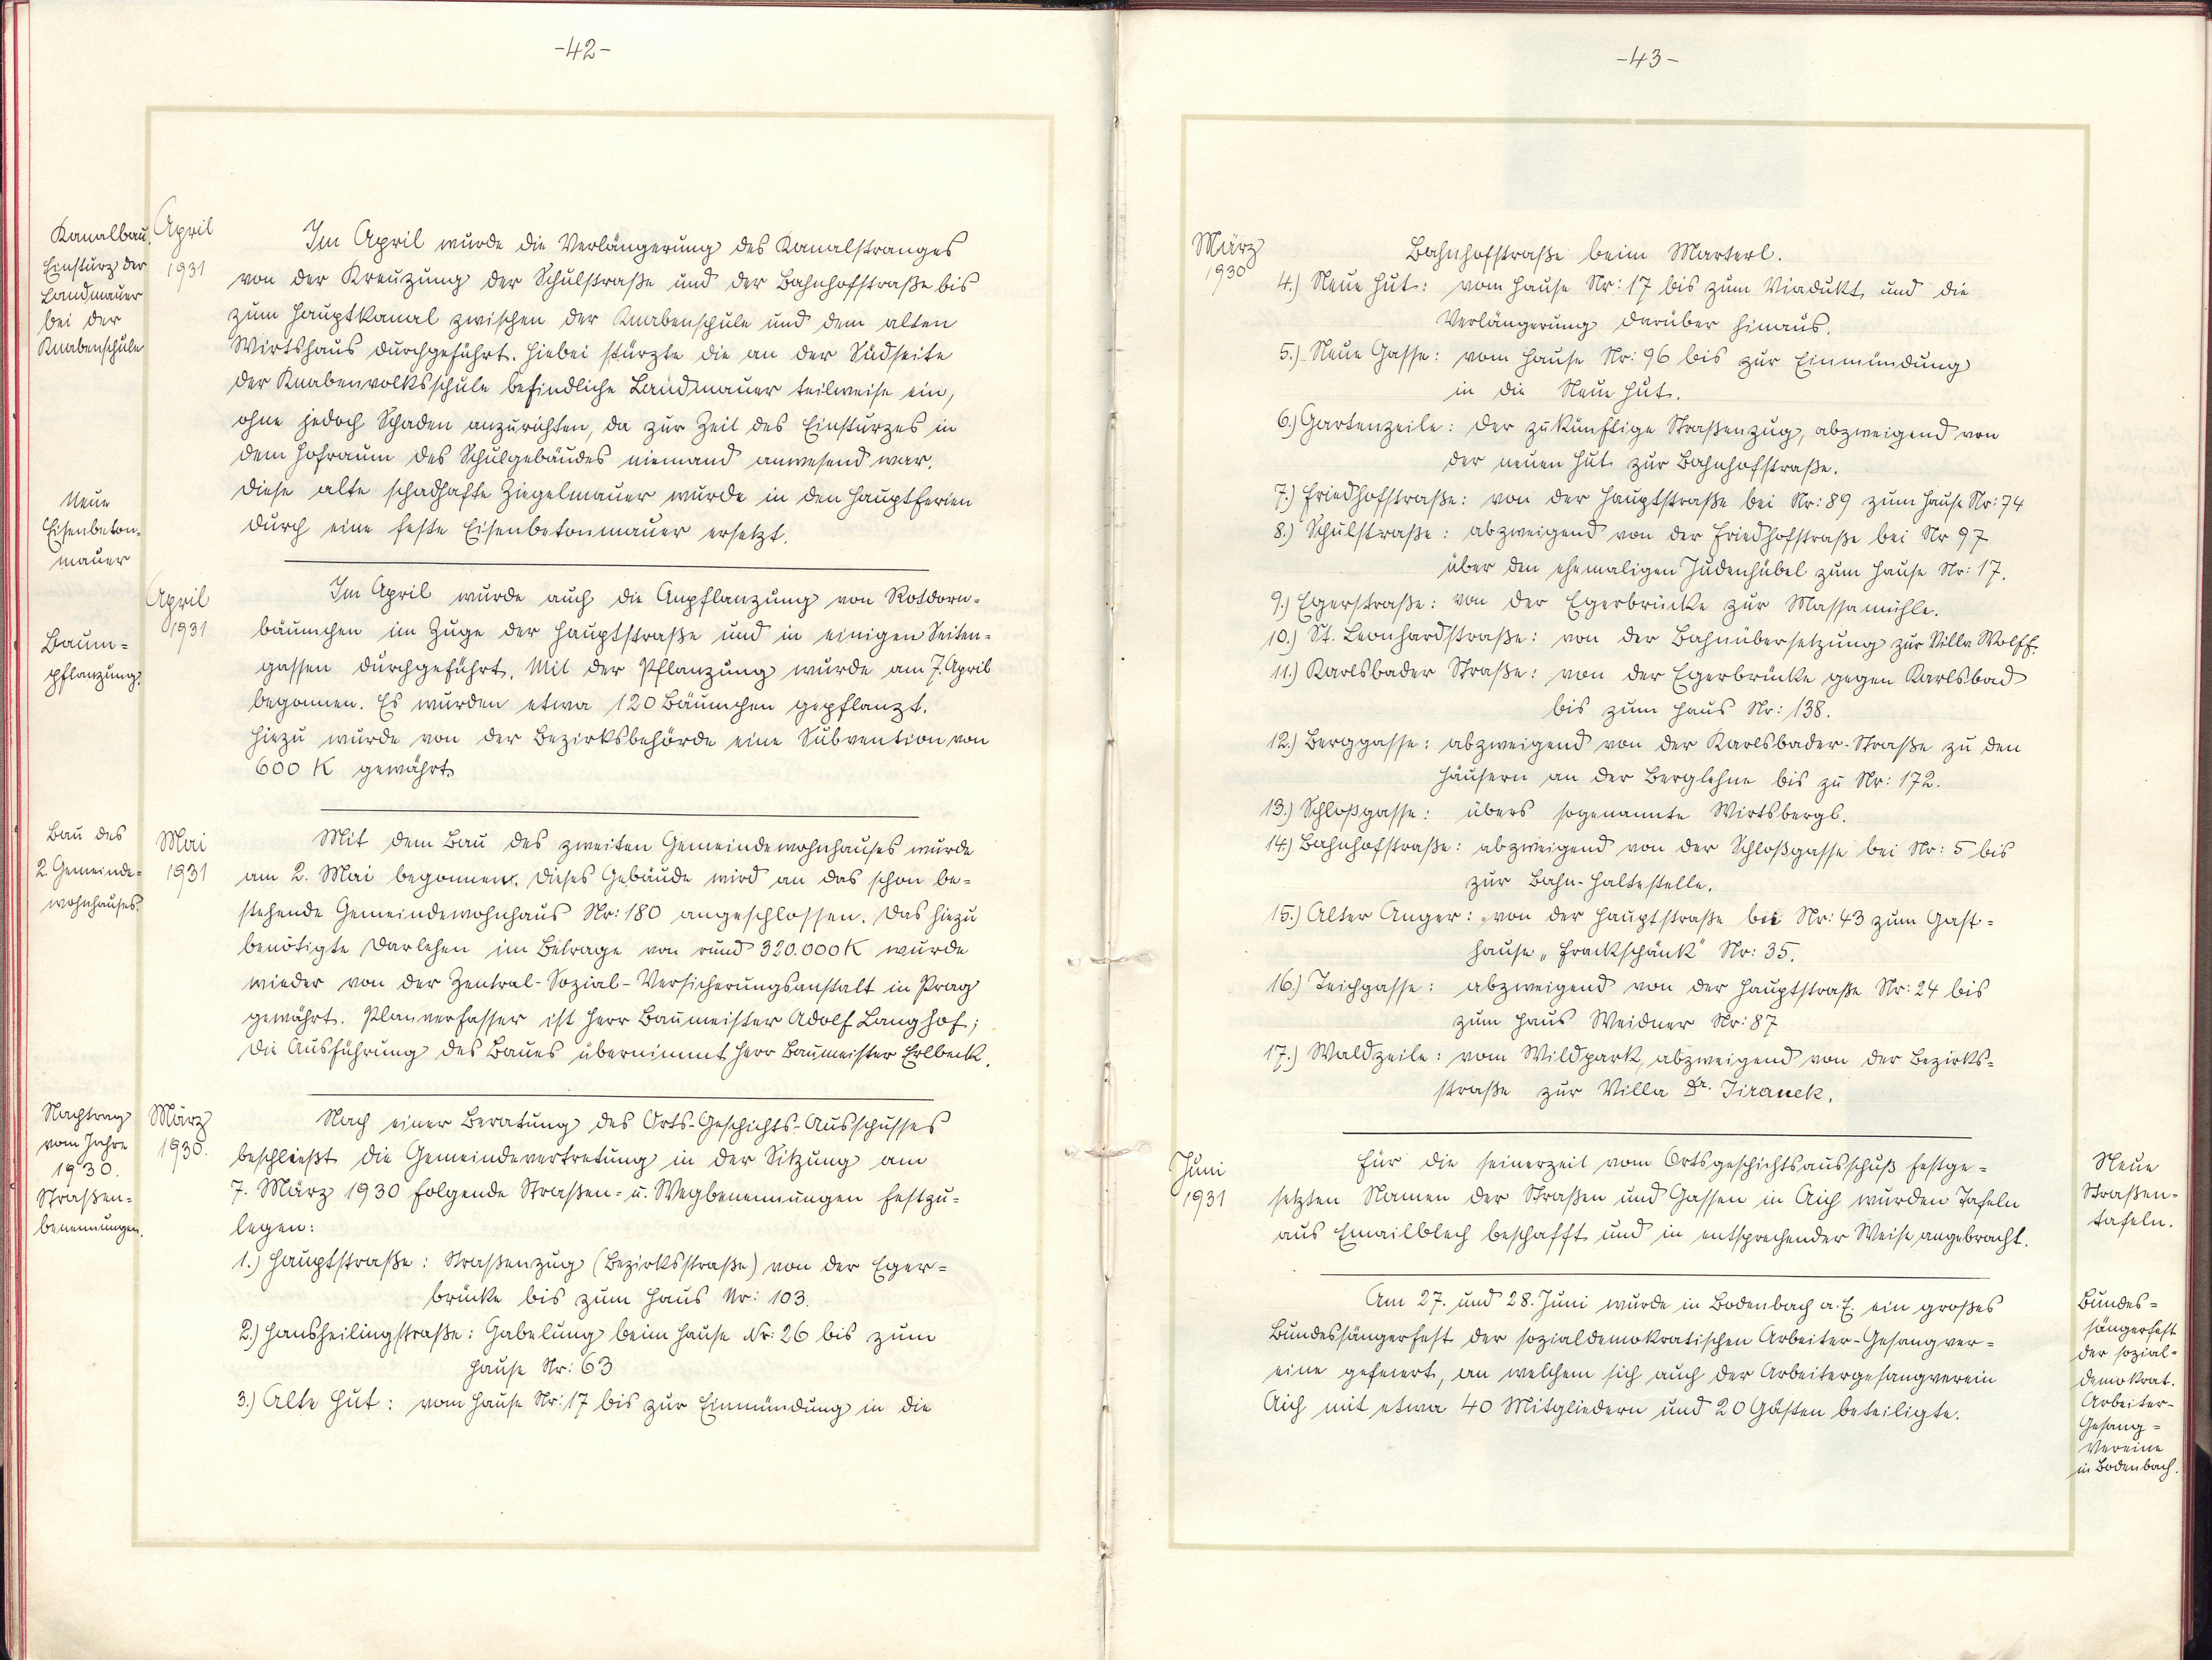 -42-
Kanalbau.
Einsturz der
Landmauer
bei der
Knabenschule
April
1931
Im April wurde die Verlängerung des Kanalstranges
von der Kreuzung der Schulstraße und der Bahnhofstraße bis
zum Hauptkanal zwischen der Knabenschule und dem alten
Wirtshaus durchgeführt. Hiebei stürzte die an der Südseite
der Knabenvolksschule befindliche Landmauer teilweise ein,
ohne jedoch Schaden anzurichten, da zur Zeit des Einsturzes in
dem Hofraum des Schulgebäudes niemand anwesend war.
Diese alte schadhafte Ziegelmauer wurde in den Hauptferien
durch eine feste Eisenbetonmauer ersetzt.
Neue
Eisenbeton-
mauer
April
1931
Baum=
pflanzung.
Im April wurde auch die Anpflanzung von Rotdorn=
bäumchen im Zuge der Hauptstraße und in einigen Seiten=
gassen durchgeführt. Mit der Pflanzung wurde am 7. April
begonnen. Es wurden etwa 120 Bäumchen gepflanzt.
Hiezu wurde von der Bezirksbehörde eine Subvention von
600 K gewährt.
Bau des
2. Gemeinde=
wohnhauses.
Mai
1931
Mit dem Bau des zweiten Gemeindewohnhauses wurde
am 2. Mai begonnen. Dieses Gebäude wird an das schon be=
stehende Gemeindewohnhaus Nr: 180 angeschlossen. Das hiezu
benötigte Darlehen im Betrage von rund 320.000 K wurde
wieder von der Zentral-Sozial-Versicherungsanstalt in Prag
gewährt. Planverfasser ist Herr Baumeister Adolf Langhof;
die Ausführung des Baues übernimmt Herr Baumeister Erlbeck.
Nachtrag
vom Jahre
1930.
Straßen=
benennungen.
März
1930.
Nach einer Beratung des Orts-Geschichts-Ausschusses
beschließt die Gemeindevertretung in der Sitzung am
7. März 1930 folgende Straßen- u. Wegbenennungen festzu=
legen:
1.) Hauptstraße: Straßenzug (Bezirksstraße) von der Eger=
brücke bis zum Haus Nr: 103.
2.) Hansheilingstraße: Gabelung beim Hause Nr: 26 bis zum
Hause Nr: 63
3.) Alte Hut: vom Hause Nr: 17 bis zur Einmündung in die
-43-
März
1930
Bahnhofstraße beim Marterl.
4.) Neue Hut: vom Hause Nr: 17 bis zum Viadukt und die
Verlängerung darüber hinaus.
5.) Neue Gasse: vom Hause Nr: 96 bis zur Einmündung
in die Neue Hut.
6.) Gartenzeile: der zukünftige Straßenzug, abzweigend von
der neuen Hut zur Bahnhofstraße.
7.) Friedhofstraße: von der Hauptstraße bei Nr: 89 zum Hause Nr: 74
8.) Schulstraße: abzweigend von der Friedhofstraße bei Nr 97
über den ehemaligen Judenhübel zum Hause Nr: 17.
9.) Egerstraße: von der Egerbrücke zur Massamühle.
10.) St. Leonhardstraße: von der Bahnübersetzung zur Villa Wolff.
11.) Karlsbader Straße: von der Egerbrücke gegen Karlsbad
bis zum Haus Nr: 138.
12.) Berggasse: abzweigend von der Karlsbader-Straße zu den
Häusern an der Berglehne bis zu Nr: 172.
13.) Schloßgasse: übers sogenannte Wirtsbergl.
14.) Bahnhofstraße: abzweigend von der Schloßgasse bei Nr: 5 bis
zur Bahn-Haltestelle.
15.) Alter Anger: von der Hauptstraße bei Nr: 43 zum Gast=
hause „Frackschänk" Nr: 35.
16.) Teichgasse: abzweigend von der Hauptstraße Nr: 24 bis
zum Haus Weidner Nr: 87
17.) Waldzeile: vom Wildpark, abzweigend von der Bezirks=
straße zur Villa Dr. Jiranek.
Juni
1931
Für die seinerzeit vom Ortsgeschichtsausschuß festge=
setzten Namen der Straßen und Gassen in Aich wurden Tafeln
aus Emailblech beschafft und in entsprechender Weise angebracht.
Neue
Straßen=
tafeln.
Am 27. und 28. Juni wurde in Bodenbach a. E. ein großes
Bundessängerfest der sozialdemokratischen Arbeiter-Gesangver=
eine gefeiert, an welchem sich auch der Arbeitergesangverein
Aich mit etwa 40 Mitgliedern und 20 Gästen beteiligte.
Bundes=
sängerfest
der sozial=
demokrat.
Arbeiter-
Gesang=
vereine
in Bodenbach.